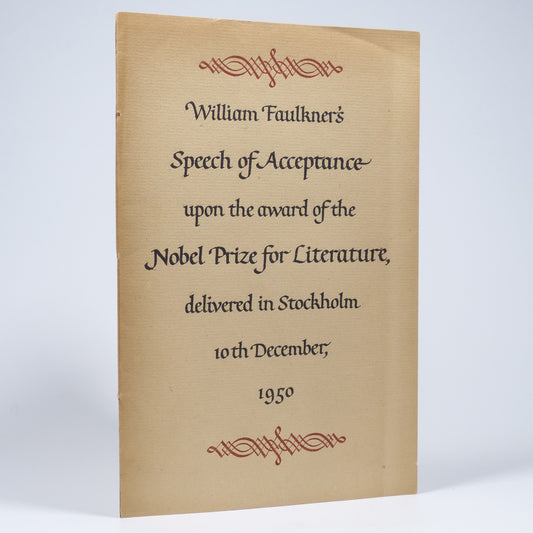 William Faulkner's
Speech of Acceptance
upon the award of the
Nobel Prize for Literature,
delivered in Stockholm
10th December,
1950